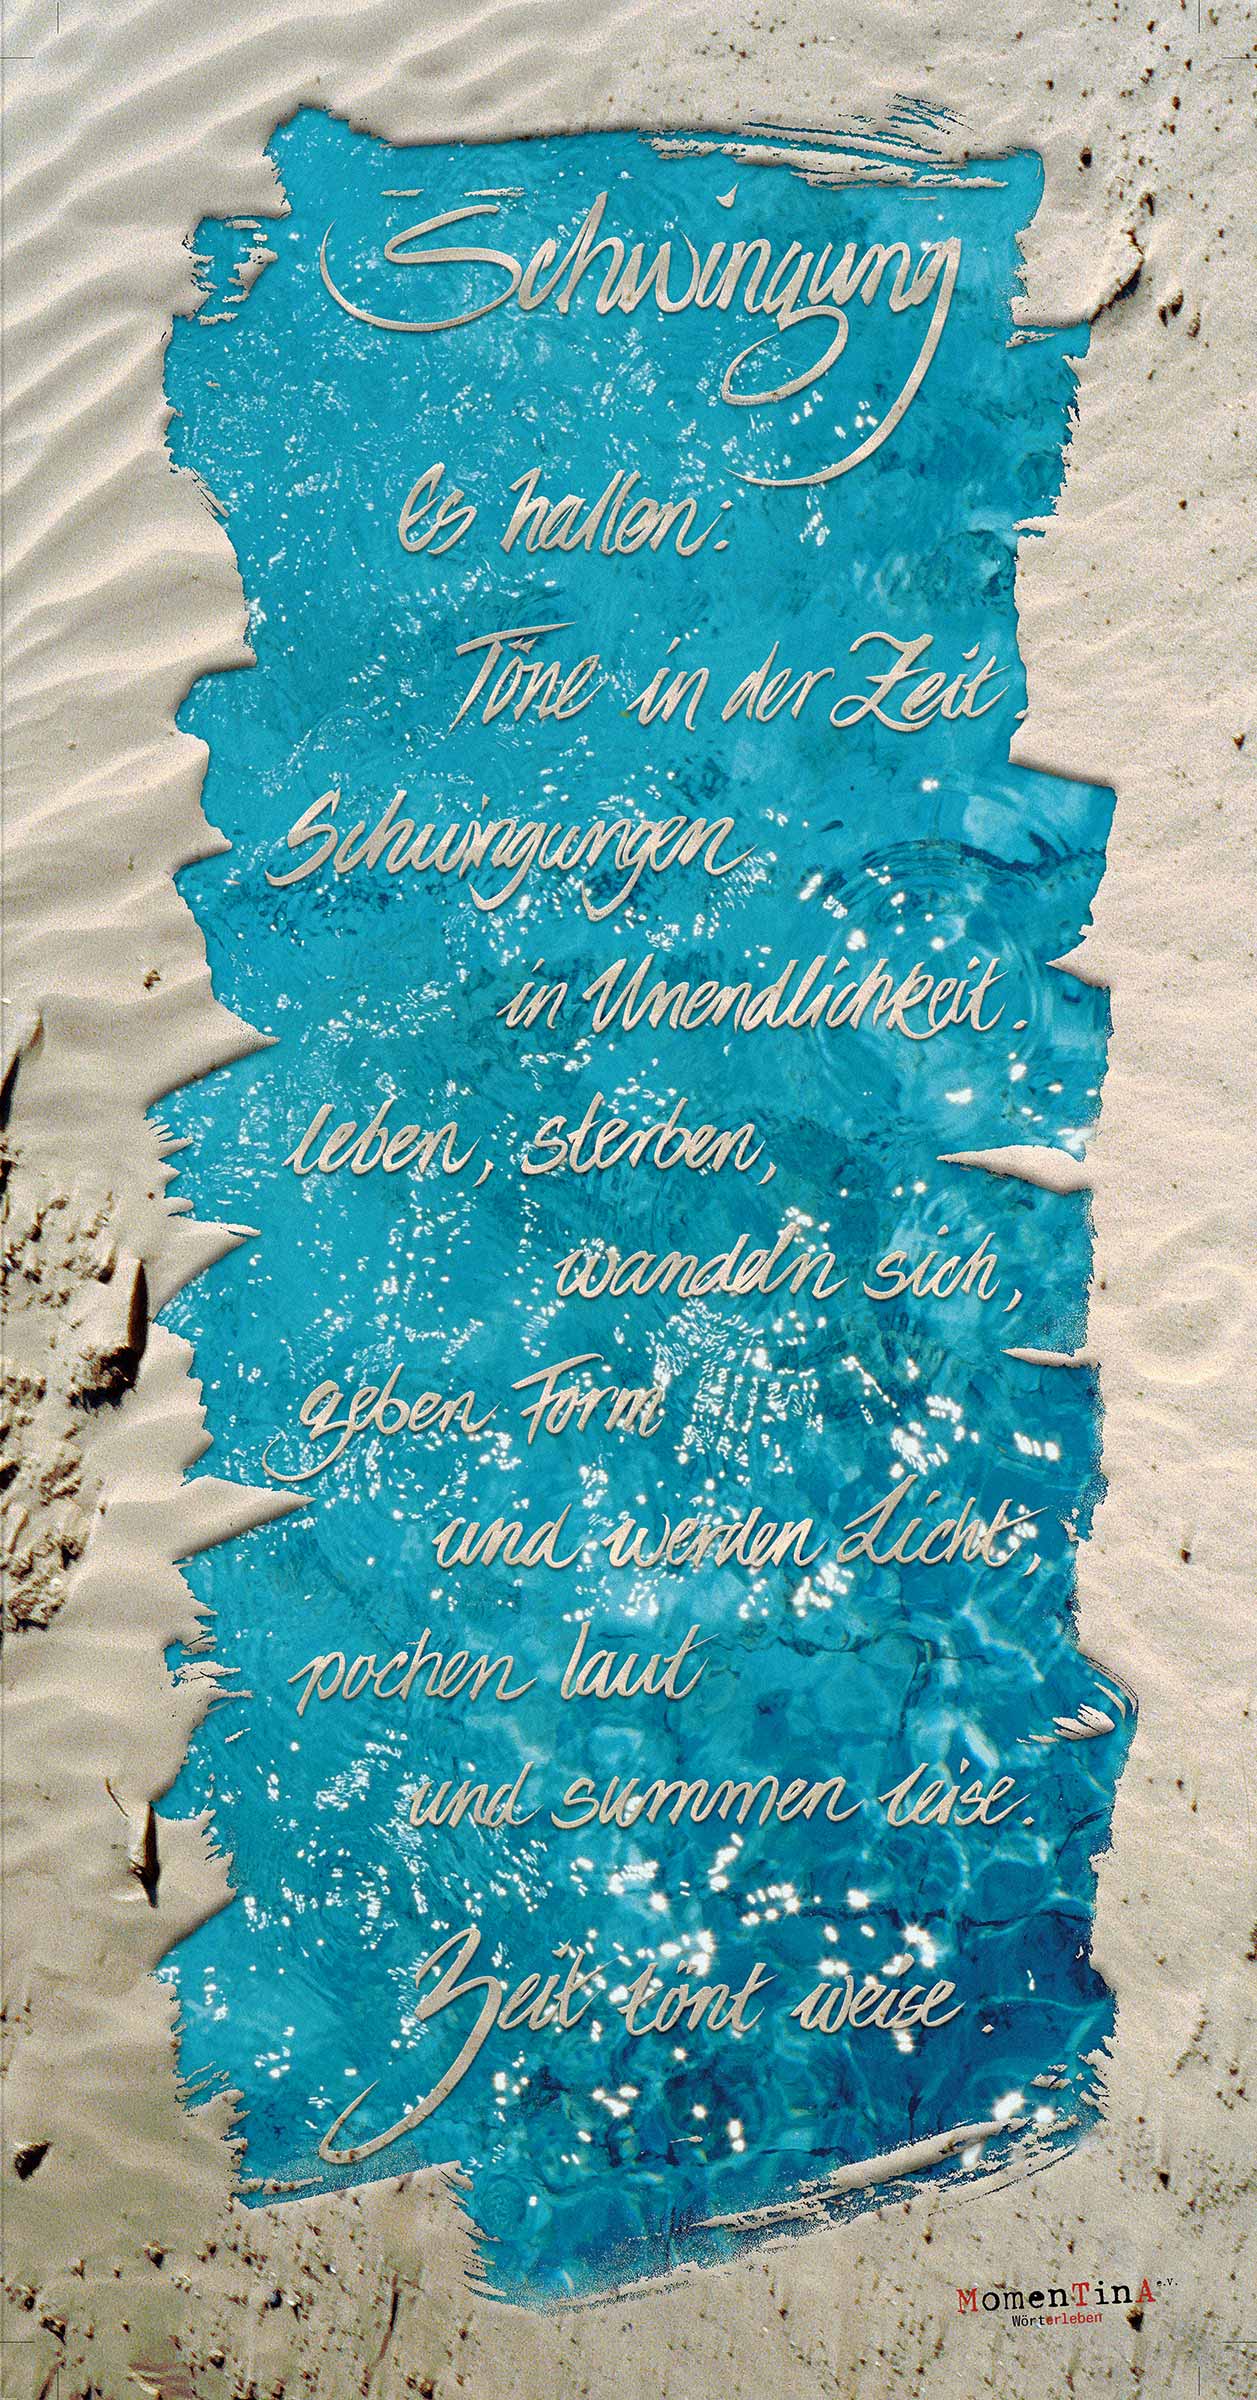 Schwingung
Es hallen:
Töne in der Zeit.
Schwingungen
in Unendlichkeit.
leben, sterben,
wandeln sich,
geben Form
und werden Licht,
pochen laut
und summen leise.
Zeit tönt weise.
MomenTinA e.V.
Wörterleben